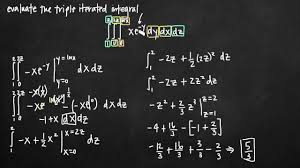 evaluate the triple iterated integral
∫₁² ∫₀²ᶻ ∫₀^(ln x) xe^(-y) dy dx dz
∫₁² ∫₀²ᶻ -xe^(-y) |_(y=0)^(y=ln x) dx dz
∫∫ -xe^(-ln x) - (-xe⁰) dx dz
∫∫ -1 + x dx dz
∫₁² -x + ½x² |_(x=0)^(x=2z) dz
∫₁² -2z + ½(2z)² dz
∫₁² -2z + 2z² dz
-z² + ⅔z³ |_(z=1)^(z=2)
-4 + 16/3 - [-1 + 2/3]
-12/3 + 16/3 + 3/3 - 2/3 → 5/3